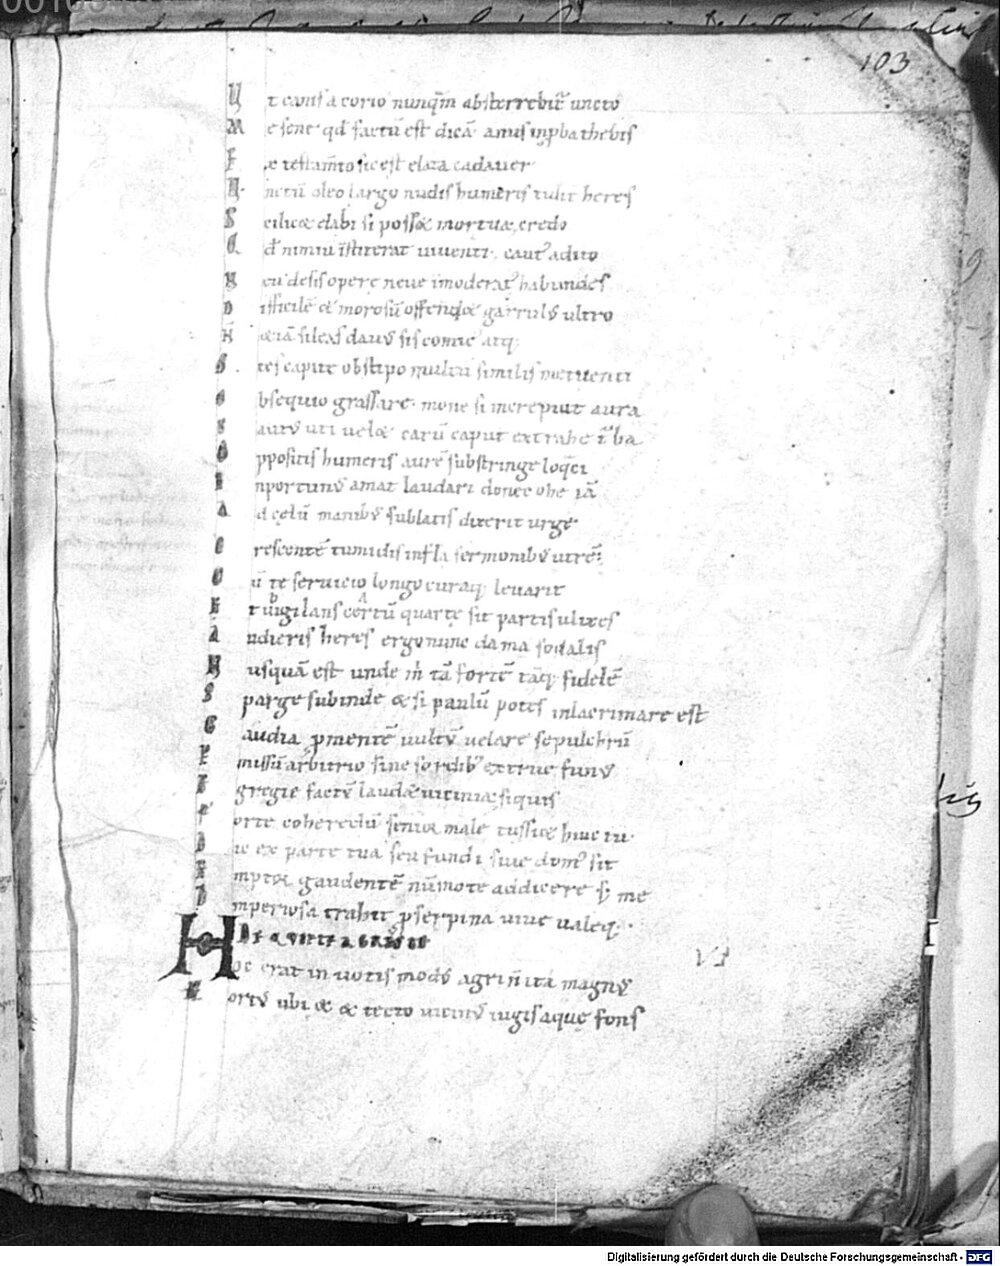 103
Ut canis a corio nunq̄m absterrebit̄ uncto
Me sene qd̄ factū est dicā anus inp̄ba thebis
Ex testam̄to sic est elata cadauer
Unctū oleo largo nudis humeris tulit heres
Scilicet elabi si posset mortua, credo
Qd̄ nimiū īstiterat uiuenti. caut᷒ adito
Neu desis opere neue īmoderat᷒ habundes
Difficilē et morosū offendet garrul᷒ ultro
N̄ etiā sileas dau᷒ sis comic᷒ atq;
Stes capite obstipo multū similis metuenti
Obsequio grassare. mone si increpuit aura
Caut᷒ uti uelet carū caput extrahe t᷒ba
Oppositis humeris aurē substringe loq̄ci
Inportun᷒ amat laudari donec ohe iā
Ad celū manib᷒ sublatis dixerit urge
Crescentē tumidis infla sermonib᷒ utrē.
Cū te seruicio longo curaq; leuarit
Et uigilans certū quarte sit partis ulixes
Audieris heres ergo nunc dama sodalis
Nusquā est unde m̄ tā fortē tāq; fidelē
Sparge subinde et si paulū potes inlacrimare est
Gaudia p̄mentē uultū uelare sepulchrū
Pmissū arbitrio sine sordib᷒ extrue fun᷒
Egregie factū laudet uicinia siquis
Forte coheredū senior male tussiet huic tu.
Dic ex parte tua seu fundi siue dom᷒ sit
Emptor gaudentē nūmo te addicere s; me
Imperiosa trahit p̄serpina uiue ualeq;.
Hoc erat in uotis mod᷒ agri n̄ ita magn᷒
Hort᷒ ubi et et tecto uicin᷒ iugis aque fons
Digitalisierung gefördert durch die Deutsche Forschungsgemeinschaft - DFG